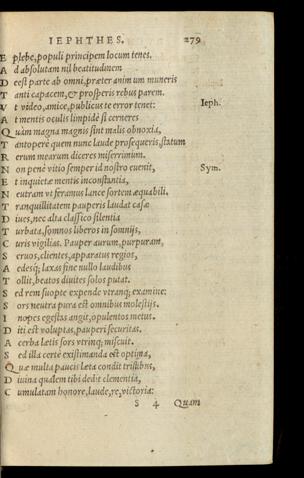 IEPHTHES. 279
E plebe, populi principem locum tenes.
A d absolutam nil beatitudinem
D eest parte ab omni, præter animum muneris
T anti capacem, & prosperis rebus parem.
V t video, amice, publicus te error tenet: Ieph.
A t mentis oculis limpidè si cerneres
Q uàm magna magnis sint malis obnoxia,
T antopere quem nunc laude prosequeris, statum
R erum mearum diceres miserrimum.
N on penè vitio semper id nostro euenit, Sym.
E t inquietæ mentis inconstantia,
N eutram vt feramus lance sortem æquabili.
T ranquillitatem pauperis laudat casæ
D iues, nec alta classico silentia
T urbata, somnos liberos in somnijs,
C uris vigilias. Pauper aurum, purpuram,
S eruos, clientes, apparatus regios,
A edesq; laxas sine nullo laudibus
T ollit, beatos diuites solos putat.
S ed rem suopte expende vtranq; examine:
S ors neutra pura est omnibus molestijs.
I nopes egestas angit, opulentos metus.
D iti est voluptas, pauperi securitas.
A cerba lætis sors vtrinq; miscuit.
S ed illa certè existimanda est optima,
Q uæ multa paucis læta condit tristibus,
D iuina qualem tibi dedit clementia,
C umulatam honore, laude, re, victoria:
S 4 Quam